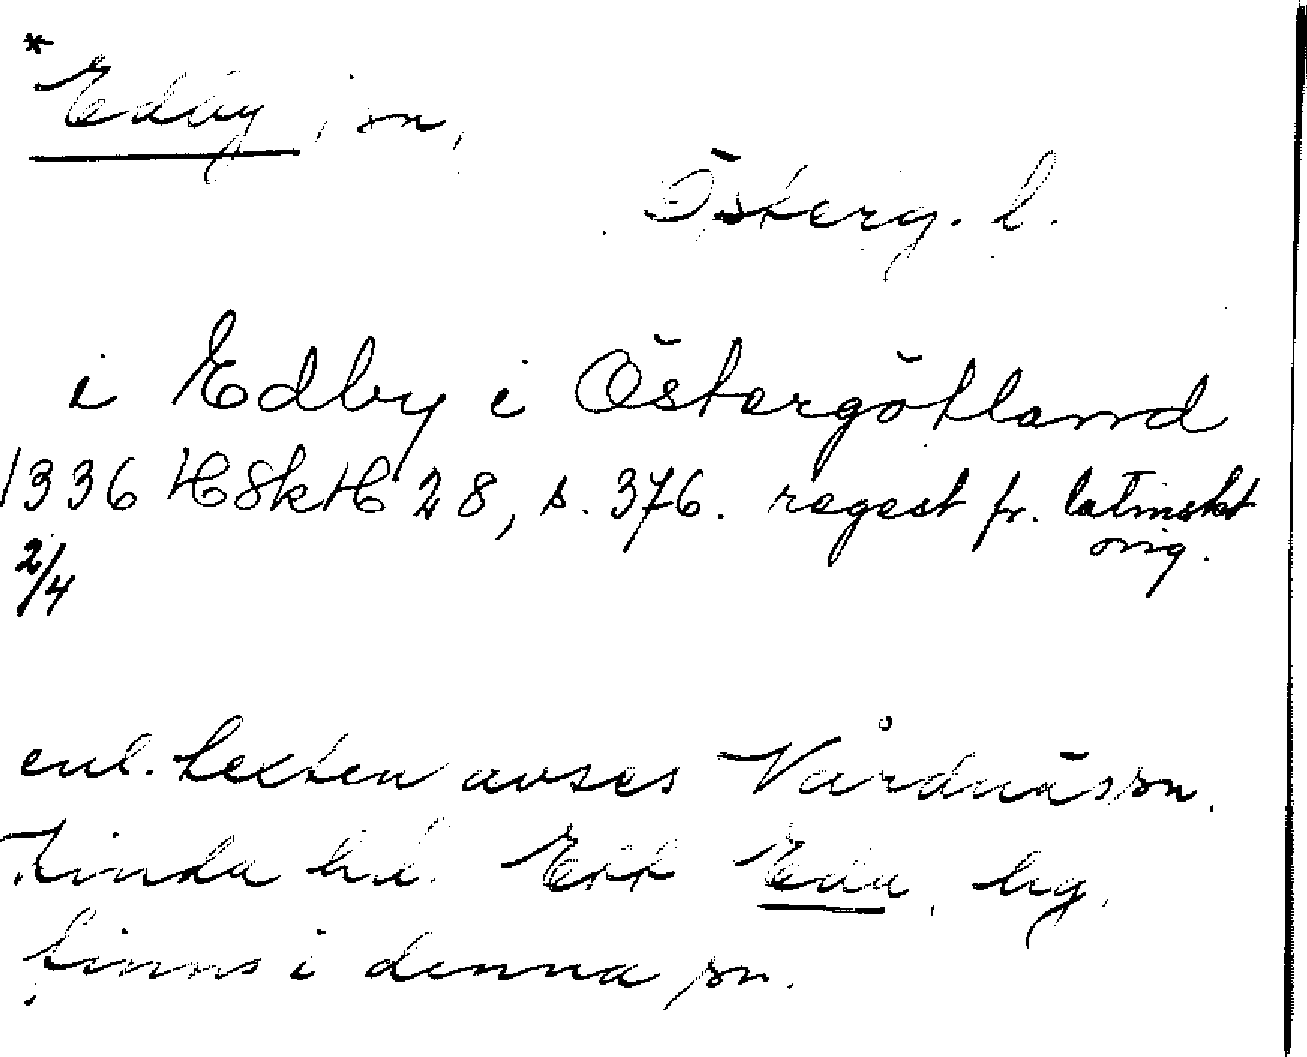 * Edby, sn,
Österg. l.
i Edby i Östergötland
1336 HSkH 28, s. 376. regest fr. latinskt
orig.
2/4
enl. texten avses Vårdnäs sn.
Kinda hd. Ett Eda, hg,
finns i denna sn.